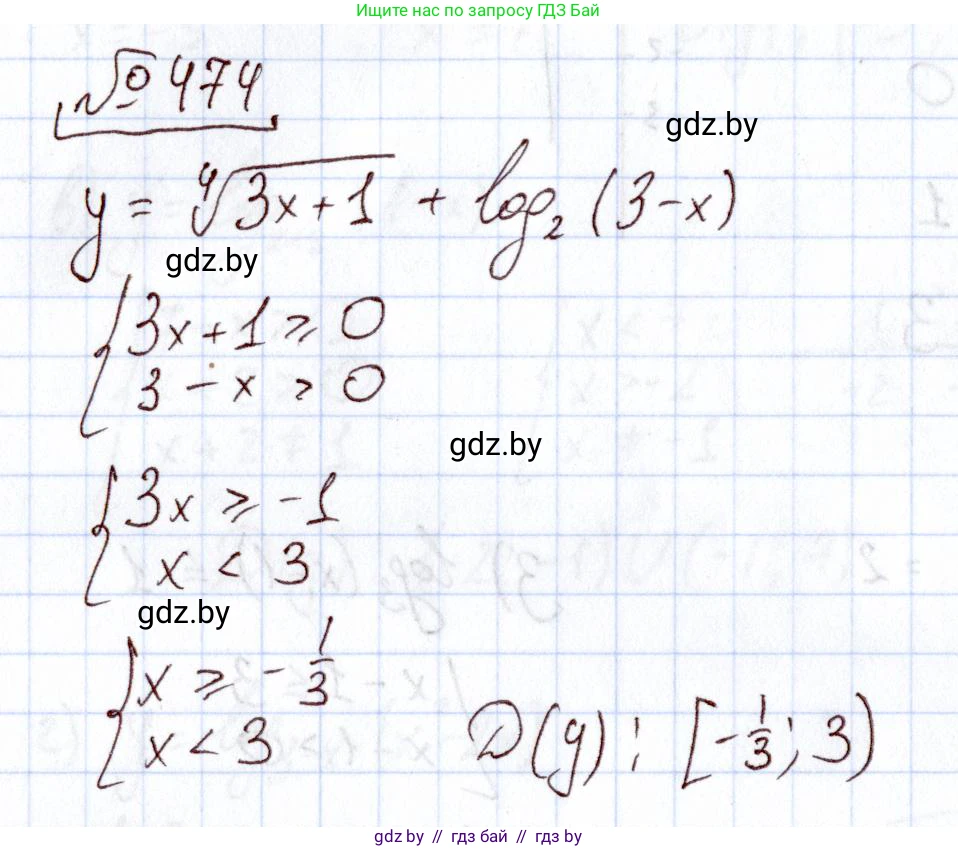 Ищите нас по запросу ГДЗ Бай
№ 474
gdz.by
y = ∜(3x+1) + log₂ (3-x)
gdz.by
{ 3x+1 ⩾ 0
3 - x > 0
gdz.by
{ 3x ⩾ -1
x < 3
gdz.by
{ x ⩾ - 1/3
x < 3
D(y): [-1/3; 3)
gdz.by // гдз бай // гдз by